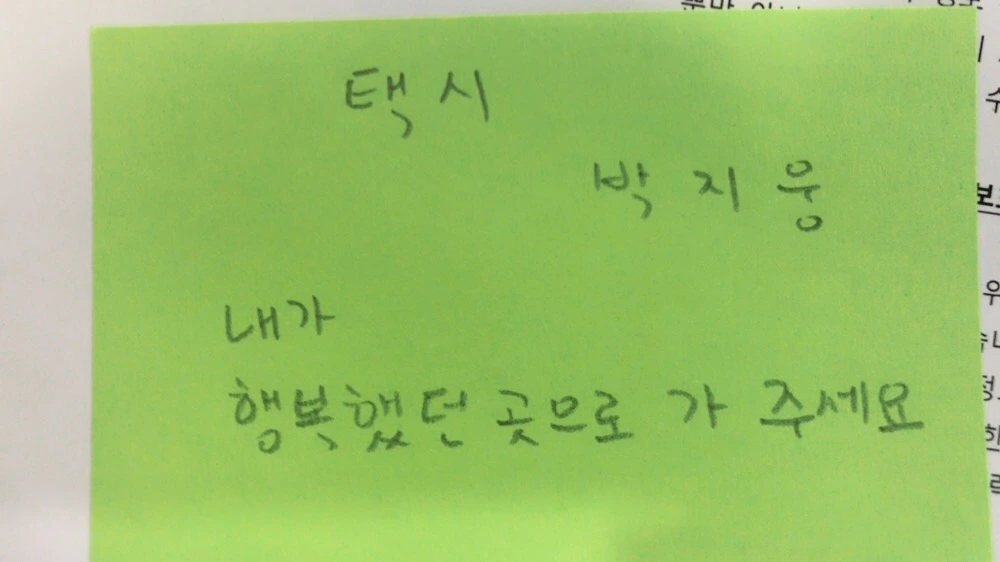 택시
박지웅
내가
행복했던 곳으로 가 주세요